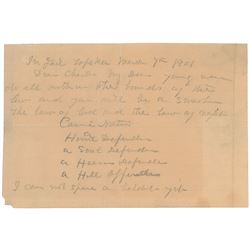 In Jail Topeka March 7th 1901
Dear Charlie My Dear young man
do all within the bounds of the
law and you will be a
The law of God and the law of
Carrie Nation
Home Defender
a Soul Defender
a Heaven Defender
a Hell
I can not spare a hatchet yet